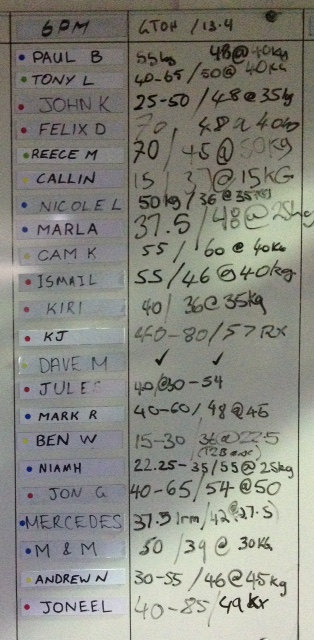 6PM GTOH / 13.4
PAUL B 55kg 48@40kg
TONY L 40-65/50@40KG
JOHN K 25-50/48@35kg
FELIX D 70/ 48@40kg
REECE M 70/45@50KG
CALLIN 15 / @15KG
NICOLE L 50kg/36@35kg
MARLA 37.5/48@25kg
CAM K 55/ 60@40kg
ISMAIL 55/46@40kg
KIRI 40/36@35kg
KJ 40-80/57RX
DAVE M ✓ ✓
JULES 40@30-54
MARK R 40-60/48@45
BEN W 15-30 36@22.5
NIAMH 22.25-35/55@25kg
JON G 40-65/54@50
MERCEDES 37.5 1rm/42@27.5
M & M 50/39@30KG
ANDREW N 30-55/46@45kg
JONEEL 40-85/49RX